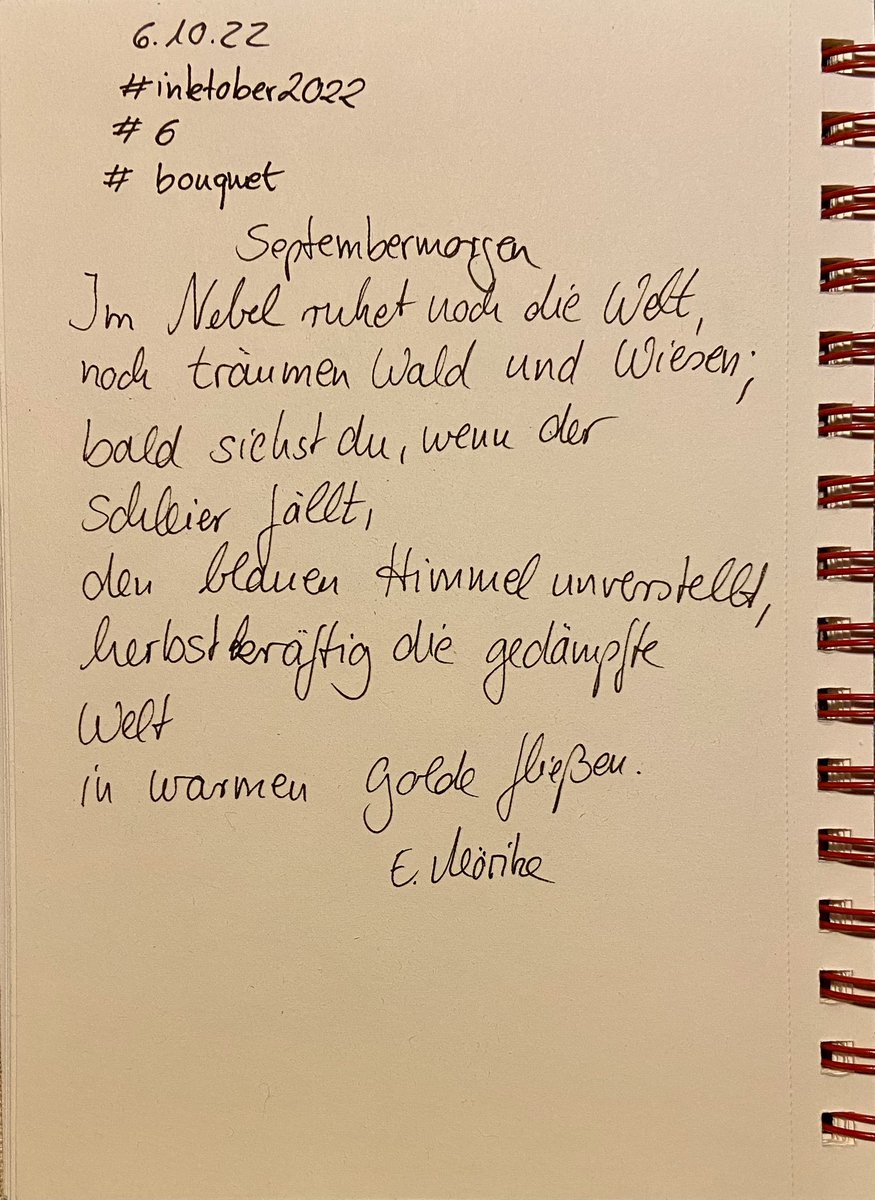 6.10.22
#inktober2022
# 6
# bouquet
Septembermorgen
Im Nebel ruhet noch die Welt,
noch träumen Wald und Wiesen;
bald siehst du, wenn der
Schleier fällt,
den blauen Himmel unverstellt,
herbstkräftig die gedämpfte
Welt
in warmen Golde fließen.
E. Mörike